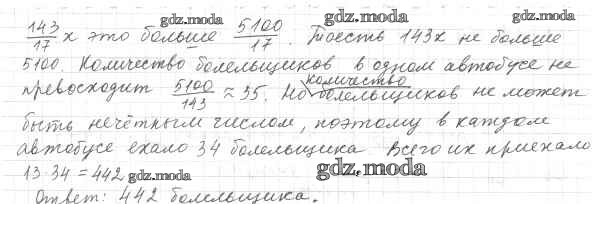 gdz.moda gdz.moda gdz.moda
143/17 x это больше 5100/17. Тоесть 143x не больше
5100. Количество болельщиков в одном автобусе не
превосходит 5100/143 ≈ 35. Но количество болельщиков не может
быть нечётным числом, поэтому в каждом
автобусе ехало 34 болельщика. Всего их приехало
13·34 = 442 gdz.moda gdz.moda
Ответ: 442 болельщика.